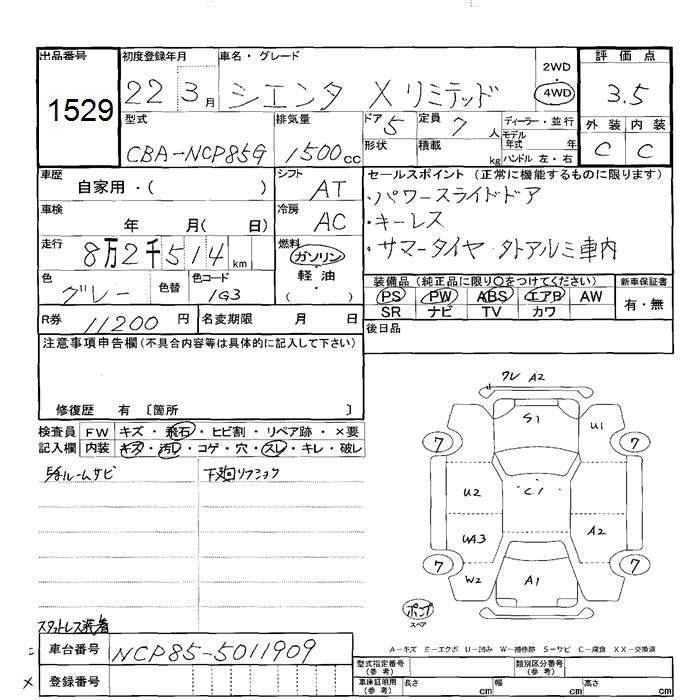 出品番号
1529
初度登録年月
22 3月
車名・グレード
シエンタ X リミテッド
2WD
4WD
評価点
3.5
外装 内装
C C
型式
CBA-NCP85G
排気量
1500cc
ドア 5
形状
定員 7人
積載 kg
ディーラー・並行
モデル年式 年
ハンドル 左・右
車歴
自家用・( )
シフト
AT
車検
年 月( 日)
冷房
AC
走行
8万2千514km
燃料
ガソリン
軽油
( )
色
グレー
色替
色コード
1G3
R券 11200円
名変期限 月 日
セールスポイント (正常に機能するものに限ります)
・パワースライドドア
・キーレス
・サマータイヤ・外アルミ車内
装備品 (純正品に限り○をつけてください)
PS PW ABS エアB AW
SR ナビ TV カワ
新車保証書
有・無
後日品
注意事項申告欄(不具合内容等は具体的に記入して下さい)
修復歴 有 〔箇所 〕
検査員記入欄
FW キズ・飛石・ヒビ割・リペア跡・×要
内装 キズ・汚れ・コゲ・穴・スレ・キレ・破レ
下廻リフショク
スタットレス装着
車台番号 NCP85-5011909
登録番号
ワレ A2
S1
U1
7
7
U2
C1
UA3
A2
7
7
W2
A1
ポンプ
スペア
A-キズ E-エクボ U-凹み W-補修跡 S-サビ C-腐食 XX-交換済
型式指定番号(参考)
類別区分番号(参考)
車庫証明用(参考) 長さ cm 幅 cm 高さ cm